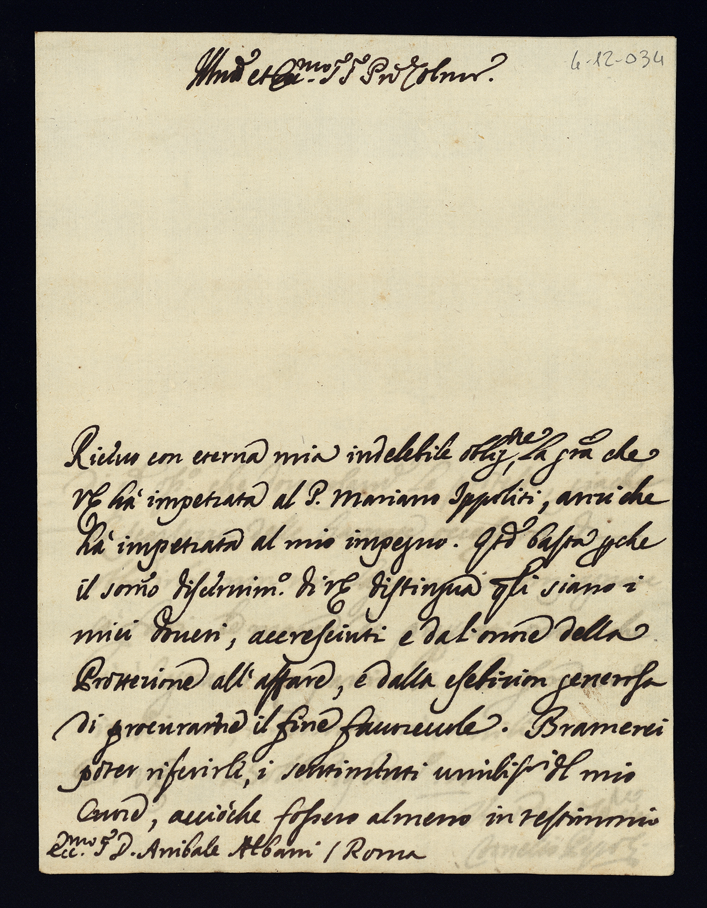 Illmo et Eccmo Sr Sr Prõn Colmo.
6-12-034
Ricevo con eterna mia indelebile obligne, la gra che
VE ha impetrata al P. Mariano Ippoliti, anzi che
ha impetrata al mio impegno. Qto basta pche
il somo discernimo. di VE distingua qli siano i
miei doveri, accresciuti e dal'onore della
Protezione all'affare, e dalla esebizion generosa
di procurarne il fine favorevole. Bramerei
poter riferirle, i sentimenti umilissi del mio
Cuore, acciòche fossero almeno in testimonio
Eccmo. Sr D. Anibale Albani / Roma